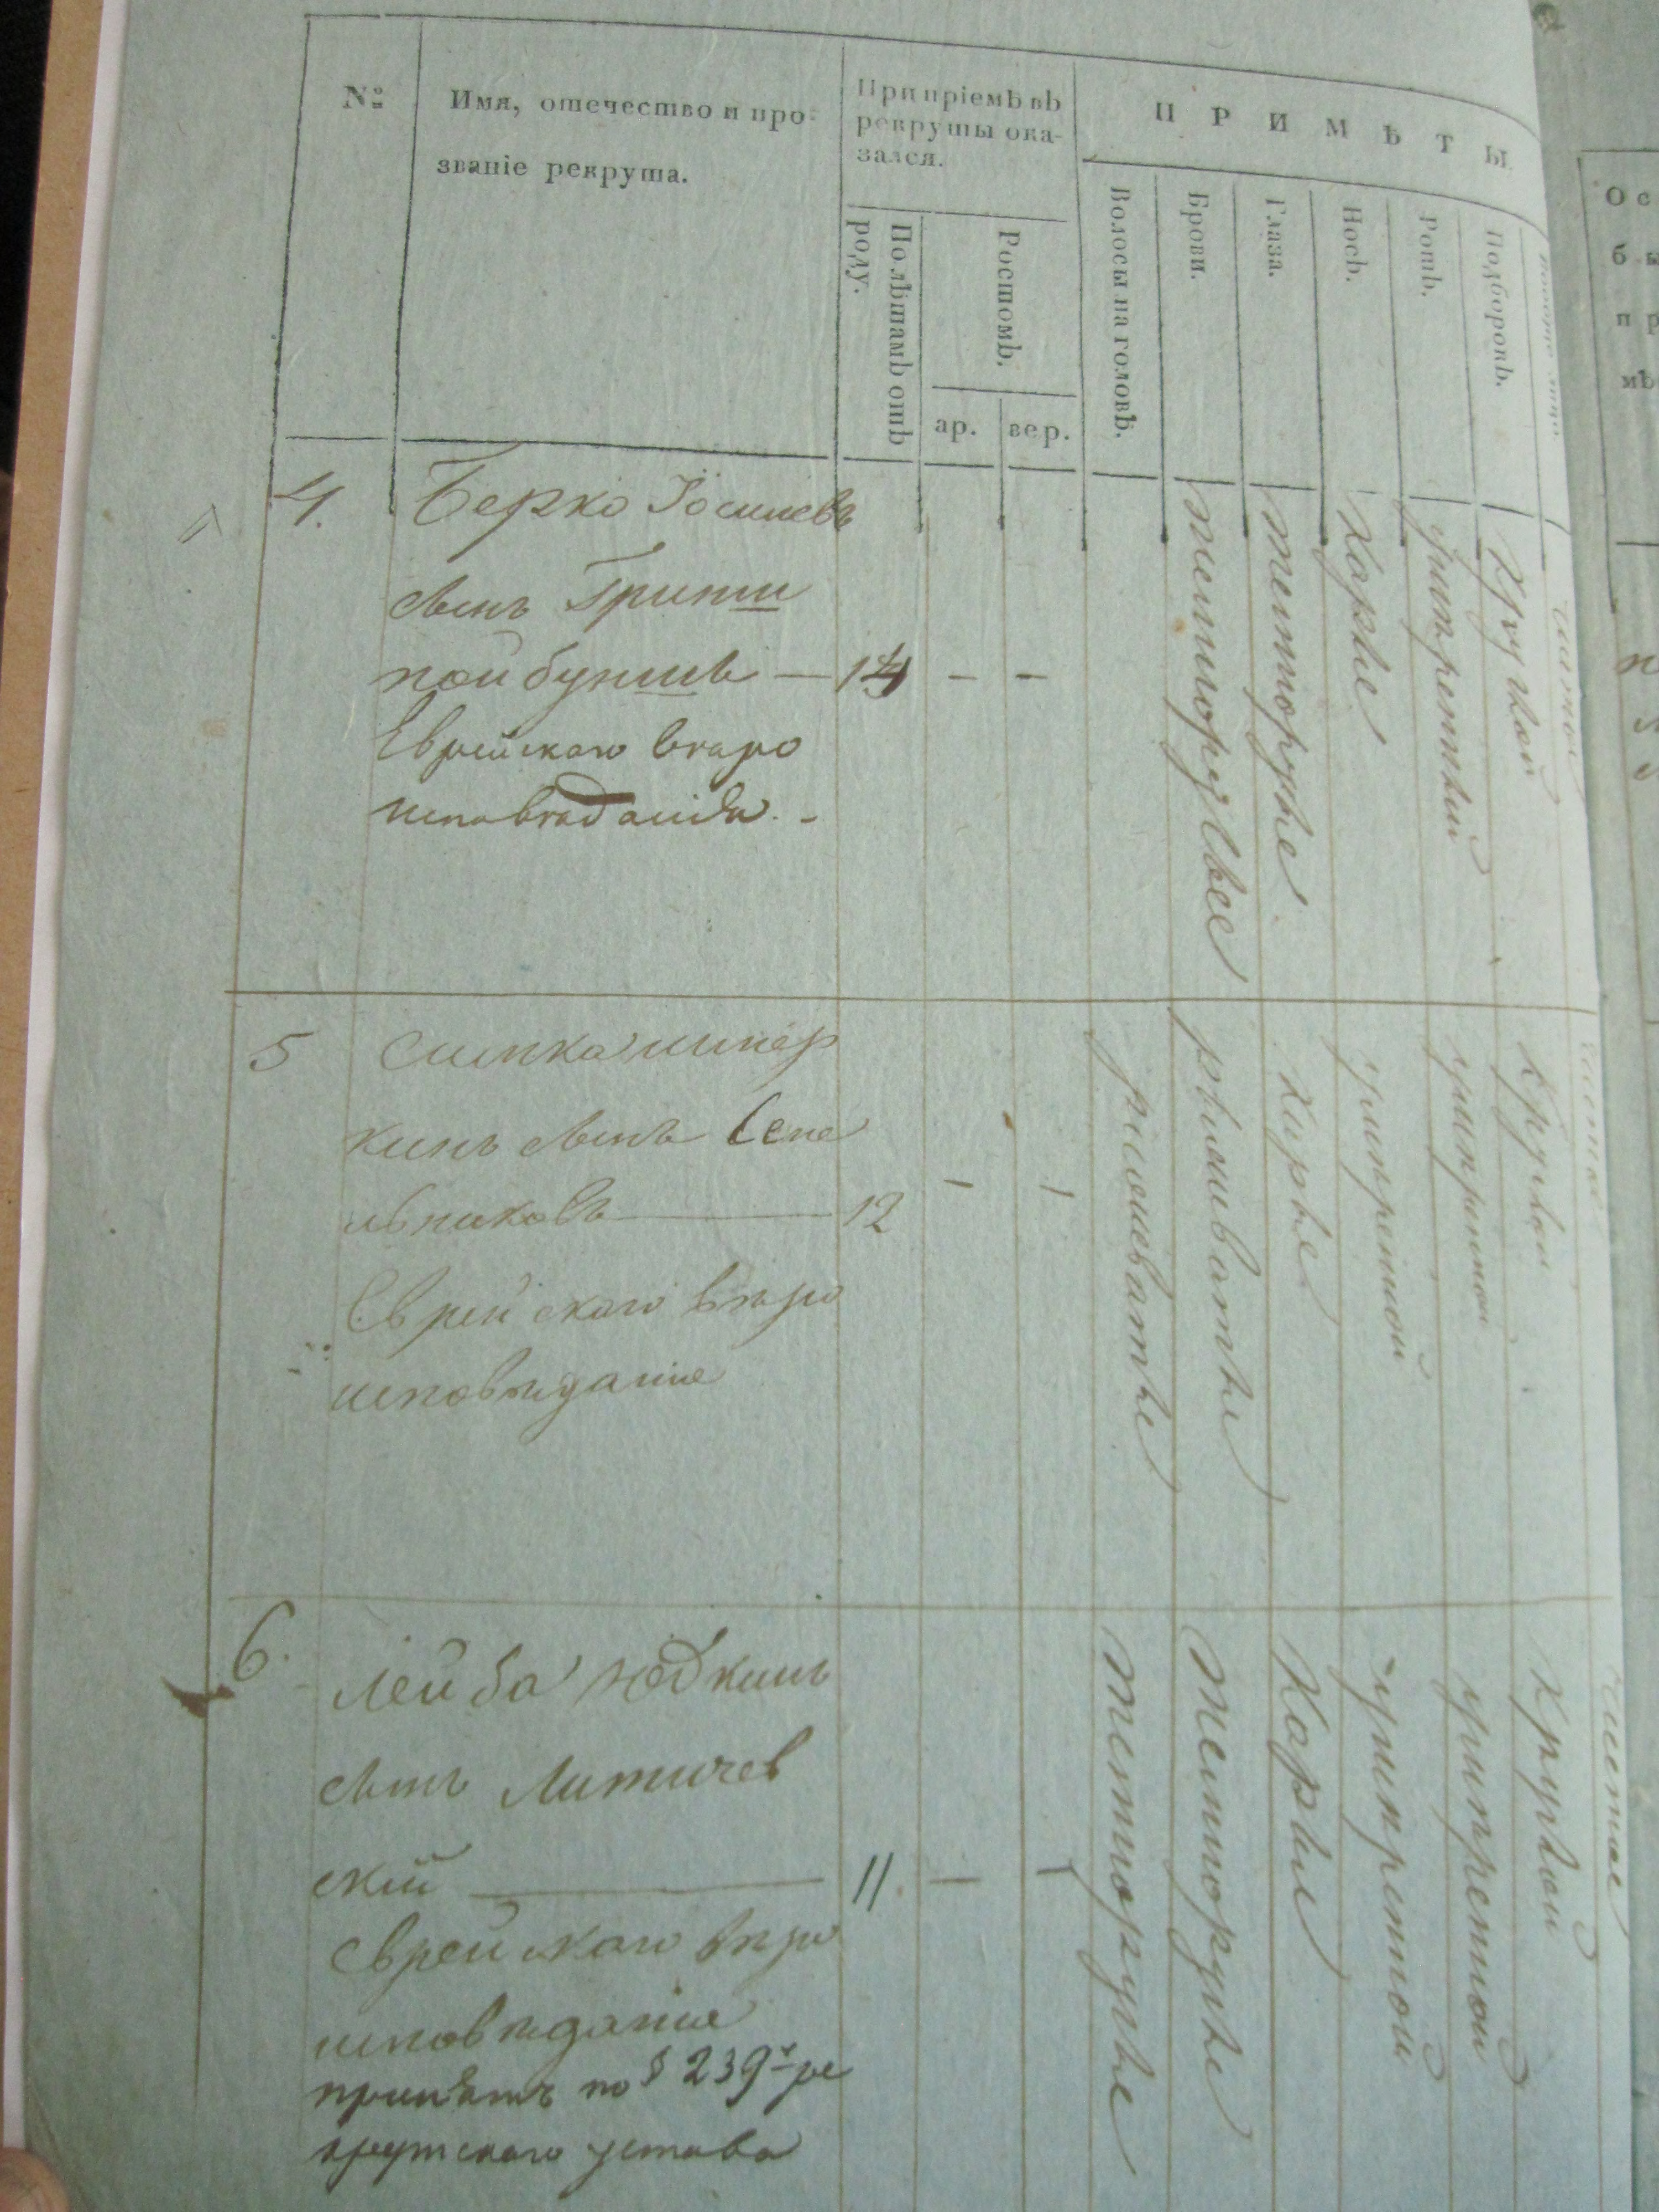 №
Имя, отечество и про-
званіе рекрута.
При пріемѣ въ
рекруты ока-
зался.
По лѣтамъ отъ
роду.
Ростомъ.
ар.
вер.
ПРИМѢТЫ
Волосы на головѣ.
Брови.
Глаза.
Носъ.
Ротъ.
Подборокъ.
Ос
бы
пр
мѣ
4.
Берко Іосіоевъ
сынъ Грини
пойбуниъ — 14 — —
Еврейскаго вѣро
исповѣданія. -
темнорусые
темнорусые
Карые
умѣренный
Круглой
чистое
5
Симка
кинъ сынъ Сене
льниковъ — 12 — —
Еврейскаго вѣро
исповѣданіе
рыжеватые
рыжеватые
карые
умѣренной
умѣренной
круглой
чистое
6.
Лейба Юдкинъ
сынъ Литичев
скій — 11. — —
Еврейскаго вѣро
исповѣданіе
принятъ по § 239му ре
крутскаго устава
темнорусые
темнорусые
Карые
умѣренной
умѣренной
круглой
чистое